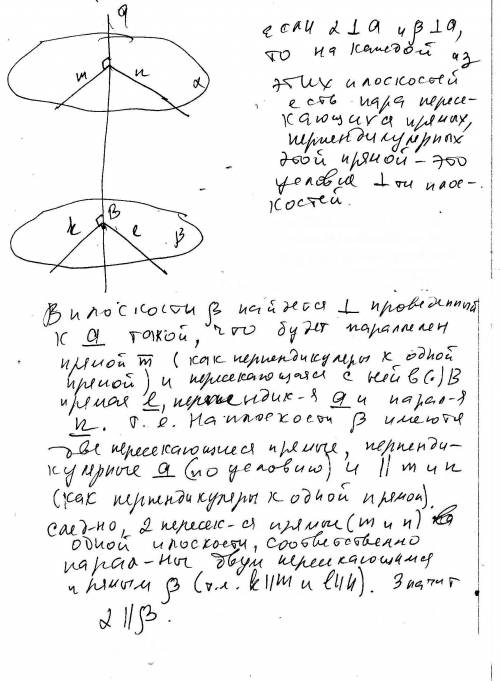 a
m
n
α
B
k
e
β
если α ⊥ a и β ⊥ a,
то на каждой из
этих плоскостей
есть пара пересе-
кающихся прямых,
перпендикулярных
этой прямой - это
условие ⊥ти плос-
костей.
В плоскости β найдется ⊥ проведенный
к a такой, что будет параллелен
прямой m (как перпендикуляры к одной
прямой) и пересекающаяся с ней в (·) B
прямая l, перпендик-я a и парал-я
n. т.е. На плоскости β имеются
две пересекающиеся прямые, перпенди-
кулярные a (по условию) и || m и n
(как перпендикуляры к одной прямой).
след-но, 2 пересек-ся прямые (m и n)
одной плоскости, соответственно
парал-ны двум пересекающимся
прямым β (т.к. k||m и l||n). Значит
α || β.